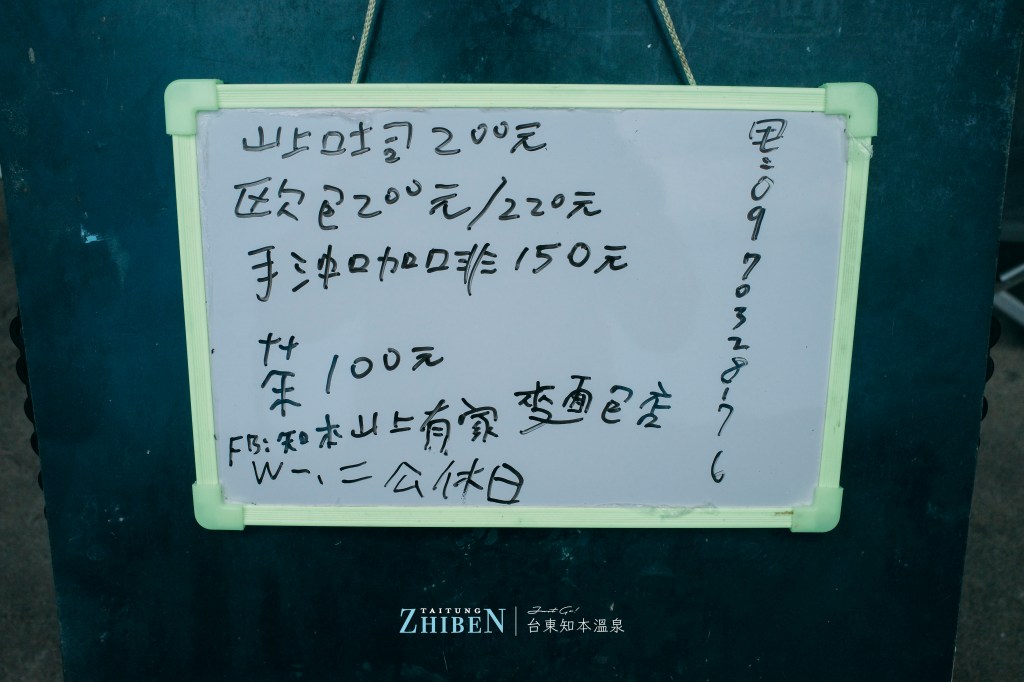 山上吐司200元
欧包200元/220元
手沖咖啡150元
茶100元
FB:知本山上有家麵包店
W一、二公休日
电:0970328176
TAITUNG
ZHIBEN
Just Go!
台東知本溫泉